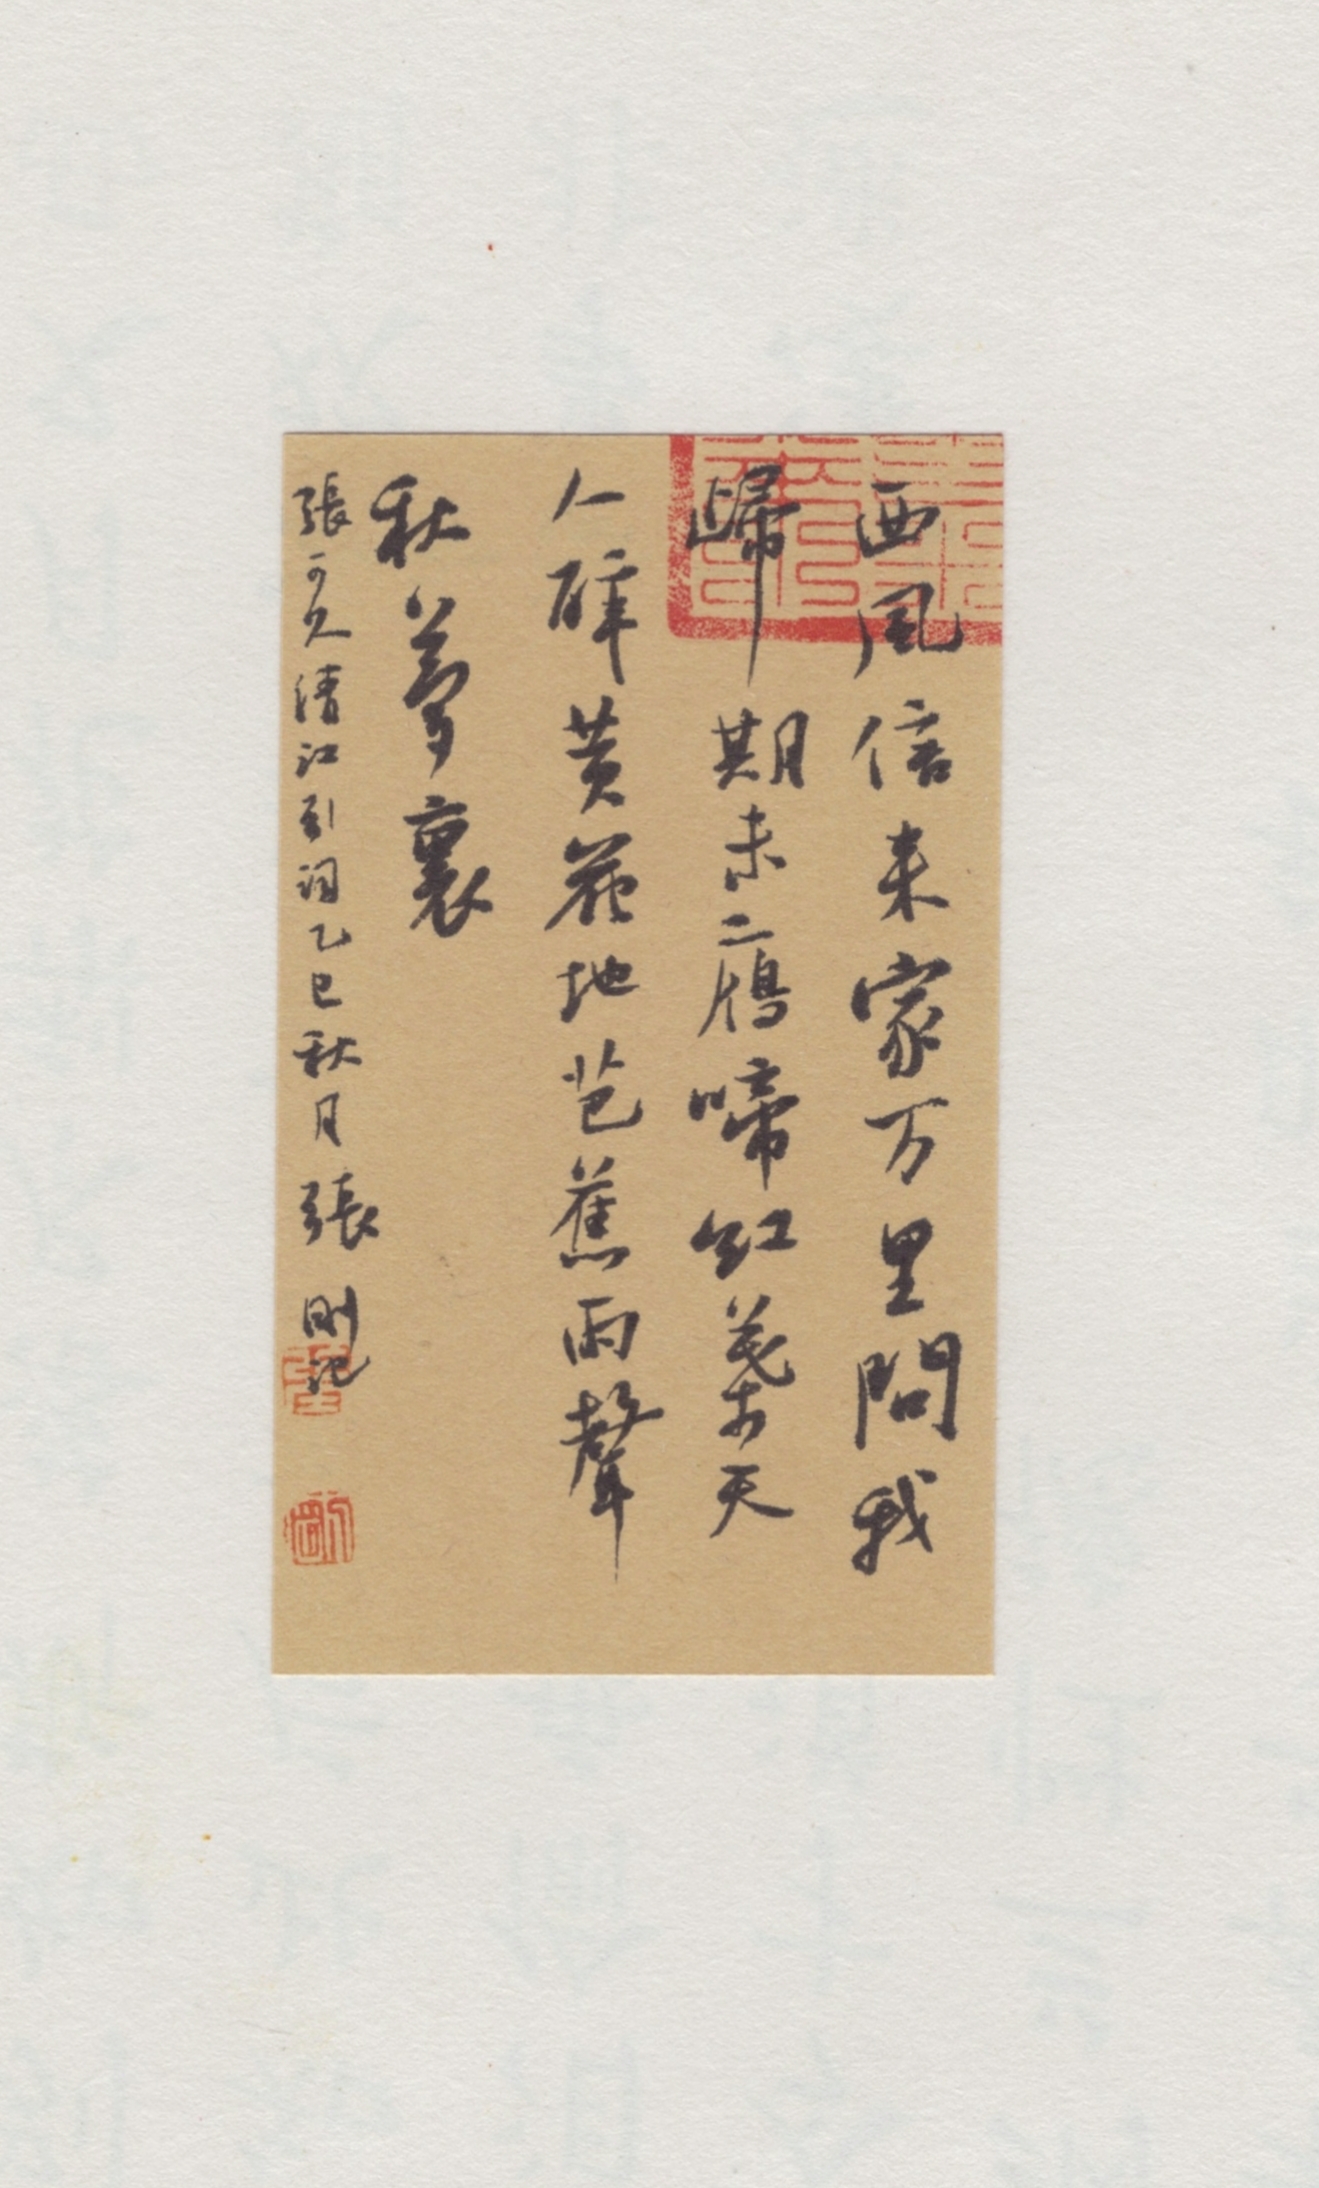 西風信来家万里問我
歸期未二鴈啼紅葉天
人醉黄花地芭蕉雨聲
秋夢裏
張可久清江引詞乙巳秋月張剛記